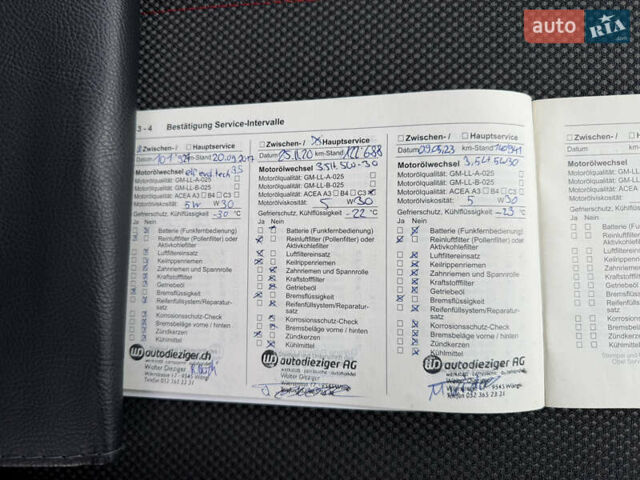 auto RIA.com
3 - 4 Bestätigung Service-Intervalle
Zwischen- / Hauptservice
Datum 101 927 km-Stand 20.09.2017
Motorölwechsel
Motorölqualität: GM-LL-A-025
GM-LL-B-025
Motorölqualität: ACEA A3 B4 C3
Motorölviskosität: 5 W 30
Gefrierschutz, Kühlflüssigkeit -30 °C
Ja Nein
Batterie (Funkfernbedienung)
Reinluftfilter (Pollenfilter) oder
Aktivkohlefilter
Luftfiltereinsatz
Keilrippenriemen
Zahnriemen und Spannrolle
Kraftstofffilter
Getriebeöl
Bremsflüssigkeit
Reifenfüllsystem/Reparatur-
satz
Korrosionsschutz-Check
Bremsbeläge vorne / hinten
Zündkerzen
Kühlmittel
autodieziger.ch
Walter Dieziger
Telefon 052 365 22 31
Zwischen- / Hauptservice
Datum 25.11.20 km-Stand 122'688
Motorölwechsel 3.5lt 5W-30
Motorölqualität: GM-LL-A-025
Motorölqualität: GM-LL-B-025
Motorölqualität: ACEA A3 B4 C3
Motorölviskosität: 5 W 30
Gefrierschutz, Kühlflüssigkeit -22 °C
Ja Nein
Batterie (Funkfernbedienung)
Reinluftfilter (Pollenfilter) oder
Aktivkohlefilter
Luftfiltereinsatz
Keilrippenriemen
Zahnriemen und Spannrolle
Kraftstofffilter
Getriebeöl
Bremsflüssigkeit
Reifenfüllsystem/Reparatur-
satz
Korrosionsschutz-Check
Bremsbeläge vorne / hinten
Zündkerzen
Kühlmittel
autodieziger AG
Walter Dieziger
Zwischen- / Hauptservice
Datum km-Stand
Motorölwechsel 3,5Lt 5W30
Motorölqualität: GM-LL-A-025
Motorölqualität: GM-LL-B-025
Motorölqualität: ACEA A3 B4 C3
Motorölviskosität: 5 W 30
Gefrierschutz, Kühlflüssigkeit -23 °C
Ja Nein
Batterie (Funkfernbedienung)
Reinluftfilter (Pollenfilter) oder
Aktivkohlefilter
Luftfiltereinsatz
Keilrippenriemen
Zahnriemen und Spannrolle
Kraftstofffilter
Getriebeöl
Bremsflüssigkeit
Reifenfüllsystem/Reparatur-
satz
Korrosionsschutz-Check
Bremsbeläge vorne / hinten
Zündkerzen
Kühlmittel
autodieziger AG
Walter Dieziger
Telefon 052 365 22 31
Zwischen-
Datum
Motorölwechsel
Motorölqualität:
Motorölqualität:
Motorölqualität:
Gefrierschutz
Ja Nein
Stempel und
Opel Serv